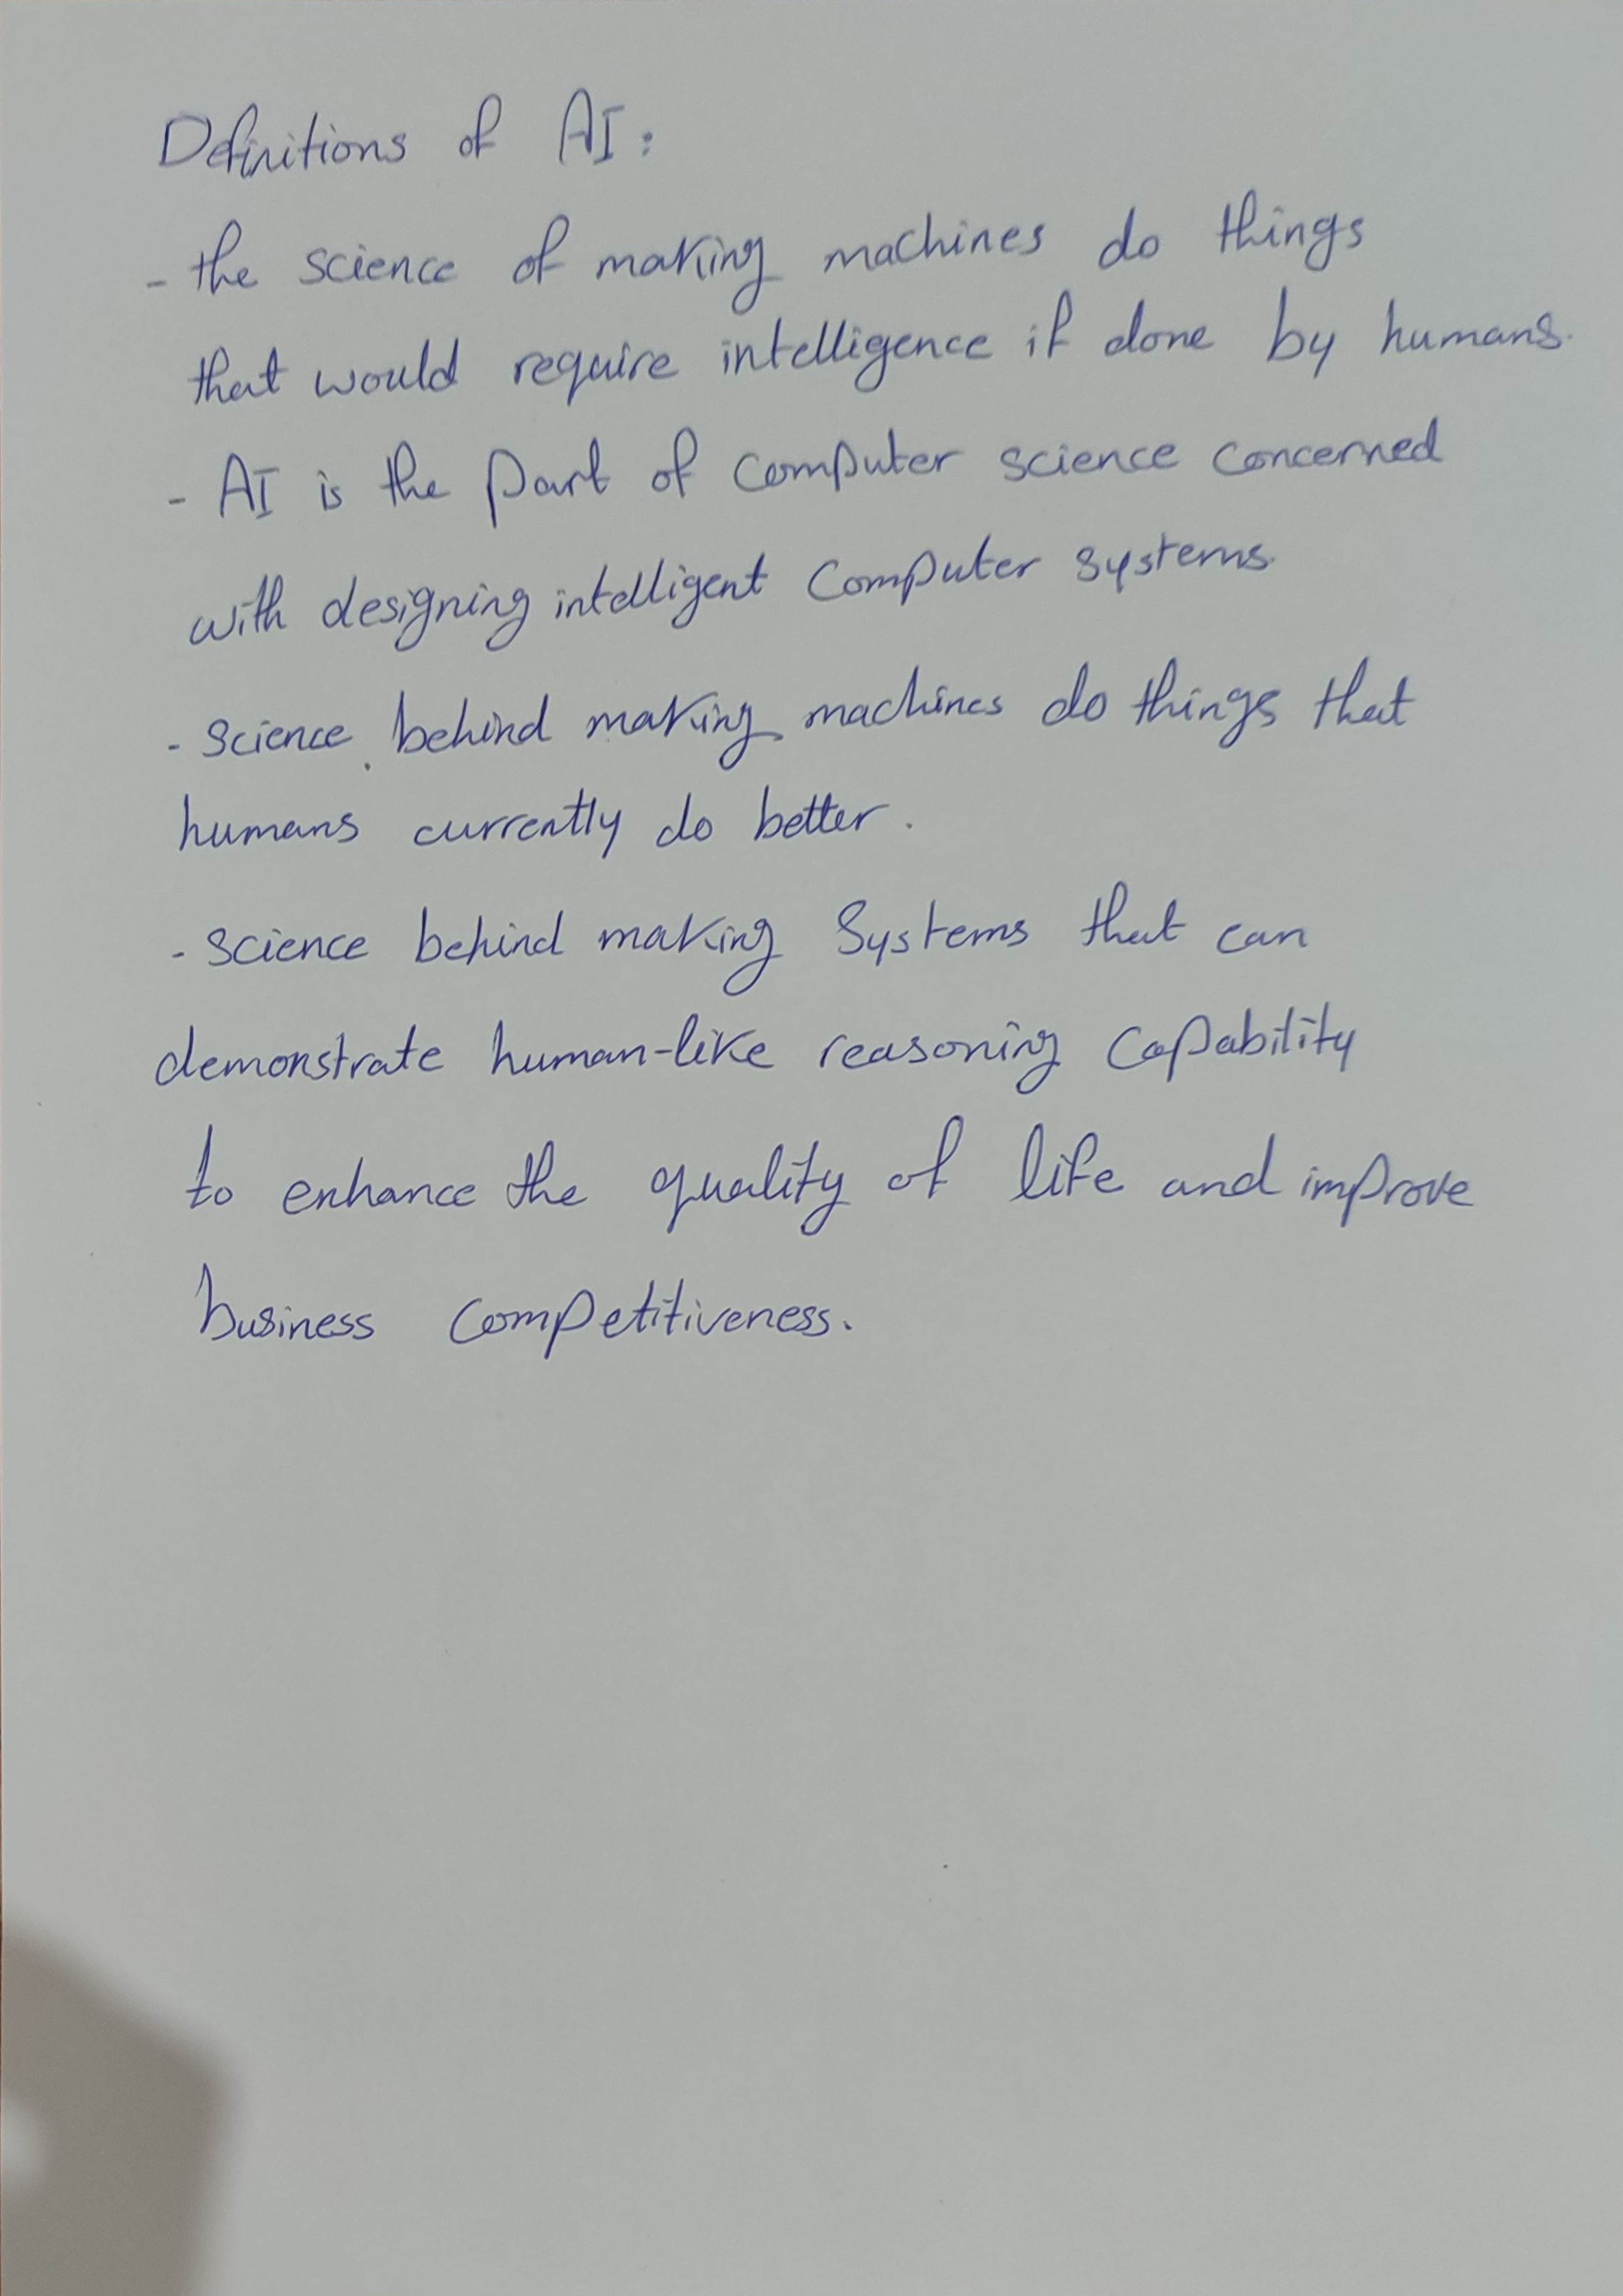 Definitions of AI:
- the science of making machines do things
that would require intelligence if done by humans.
- AI is the part of computer science concerned
with designing intelligent Computer systems.
- science behind making machines do things that
humans currently do better.
- science behind making Systems that can
demonstrate human-like reasoning capability
to enhance the quality of life and improve
business competitiveness.